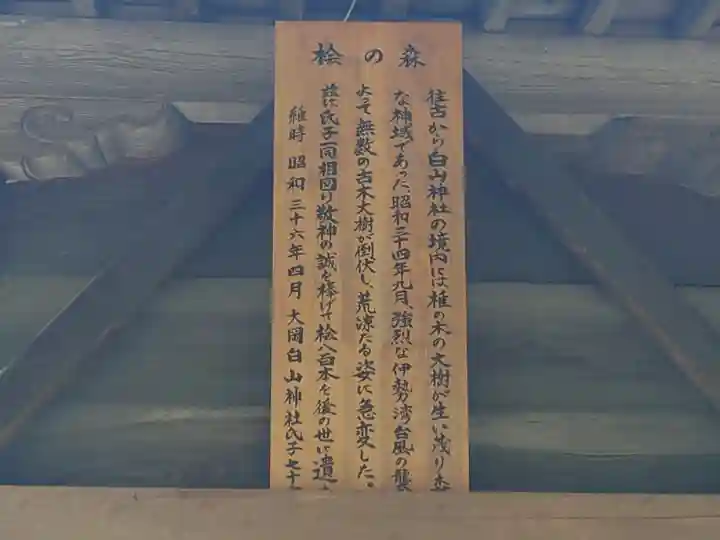 桧の森
往古から白山神社の境内には椎の木の大樹が生い茂り
な神域であった。昭和三十四年九月、強烈な伊勢湾台風の襲
よって無数の古木大樹が倒伏し、荒涼たる姿に急変した。
茲に氏子一同相図り敬神の誠を捧げて桧八百本を後の世に遺
維時 昭和三十六年四月 大岡白山神社氏子七十